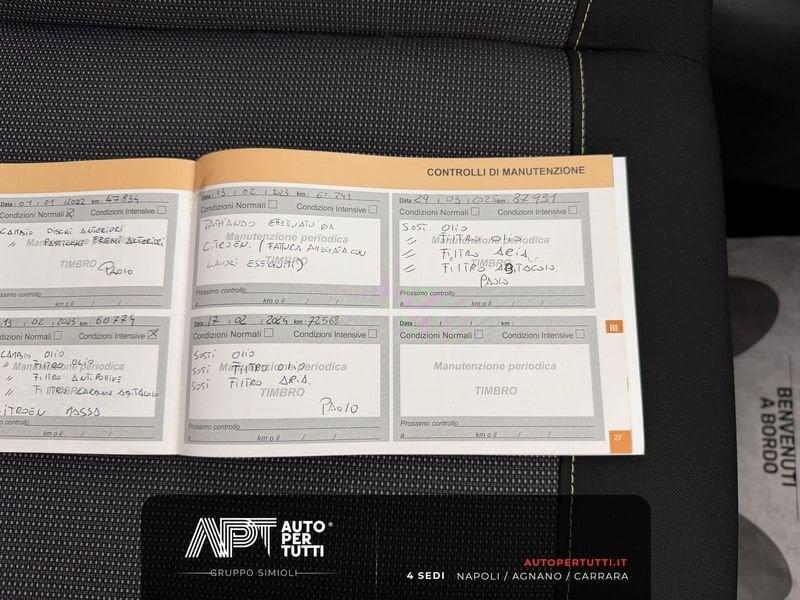 CONTROLLI DI MANUTENZIONE
Data : 01 / 01 / 2022 km : 47834
Condizioni Normali Condizioni Intensive
CAMBIO DISCHI ANTERIORI
" PASTICCHE FRENI ANTERIORI
Manutenzione periodica
TIMBRO
PAOLO
Prossimo controllo
km o il / /
13 / 02 / 2023 km : 60774
Condizioni Normali Condizioni Intensive
CAMBIO OLIO
" FILTRO OLIO
" FILTRO ANTIPOLLINE
" FILTRO CARBONE ABITACOLO
Manutenzione periodica
TIMBRO
CITROEN MASSA
Prossimo controllo
km o il / /
Data : 13 / 02 / 2023 km :
Condizioni Normali Condizioni Intensive
TAGLIANDO EFFETTUATO DA
CITROEN. (FATTURA ALLEGATA CON
LAVORI ESEGUITI)
Manutenzione periodica
TIMBRO
Prossimo controllo
a km o il / /
17 / 02 / 2024 km : 72568
Condizioni Normali Condizioni Intensive
SOSTI OLIO
SOSTI FILTRO OLIO
SOSTI FILTRO ARIA.
Manutenzione periodica
TIMBRO
PAOLO
Prossimo controllo
a km o il / /
Data : 29 / 03 / 2025 km : 87931
Condizioni Normali Condizioni Intensive
SOSTI. OLIO
" FILTRO OLIO
" FILTRO ARIA
" FILTRO ABITACOLO.
Manutenzione periodica
TIMBRO
PAOLO
Prossimo controllo
a km o il / /
Data : / / km :
Condizioni Normali Condizioni Intensive
Manutenzione periodica
TIMBRO
Prossimo controllo
a km o il / /
III
27
BENVENUTI
A BORDO
APT AUTO
PER
TUTTI
GRUPPO SIMIOLI
AUTOPERTUTTI.IT
4 SEDI NAPOLI / AGNANO / CARRARA